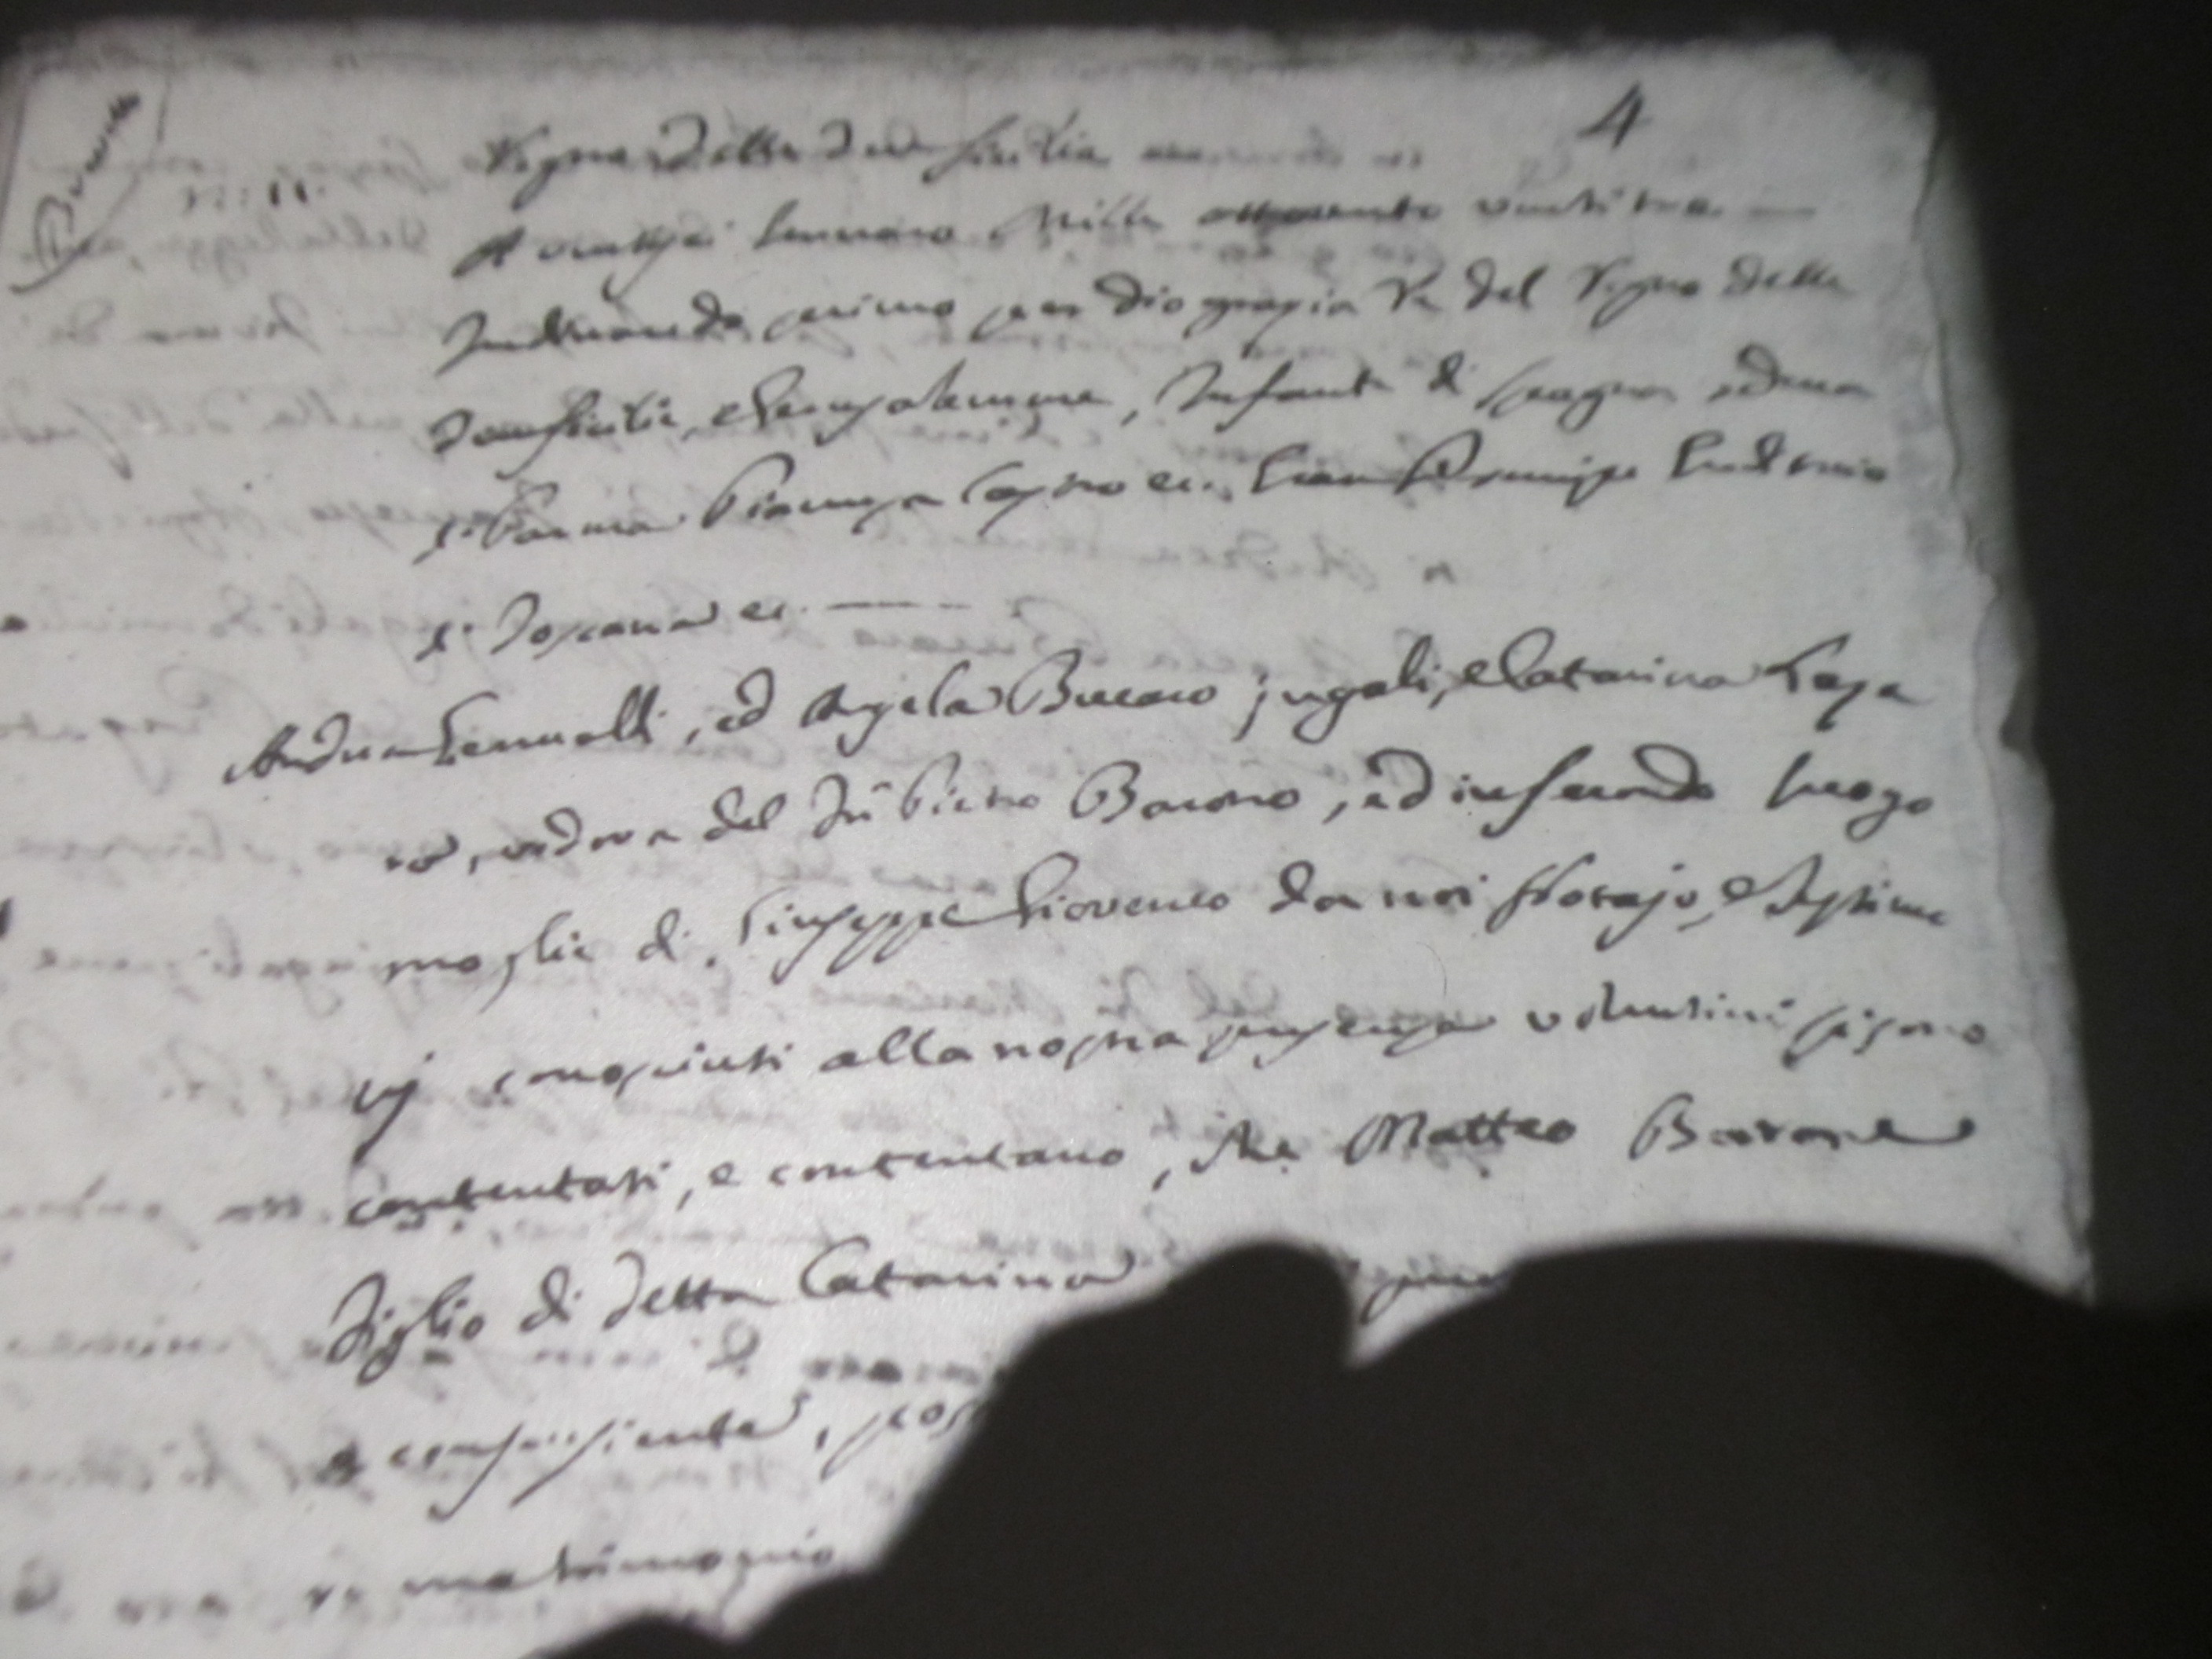 4
Regno delle due Sicilie
A ventisei Gennaro Mille ottocento venti tre
Ferdinando primo per Dio grazia Re del Regno delle
due Sicilie, e Gerusalemme, Infante di Spagna
di Parma Piacenza Castro ec. Gran Principe Ereditario
di Toscana ec.
Andrea, ed Angela Bucaro jugali, e Catarina
vedova del Fù Pietro Barone, ed in secondo luogo
moglie di Giuseppe Giovenco da noi Notajo, e Testimo
nj conosciuti alla nostra presenza volentieri si sono
contentati, e contentano, che Matteo Barone
Figlio di detta Catarina
e consenziente,
matrimonio